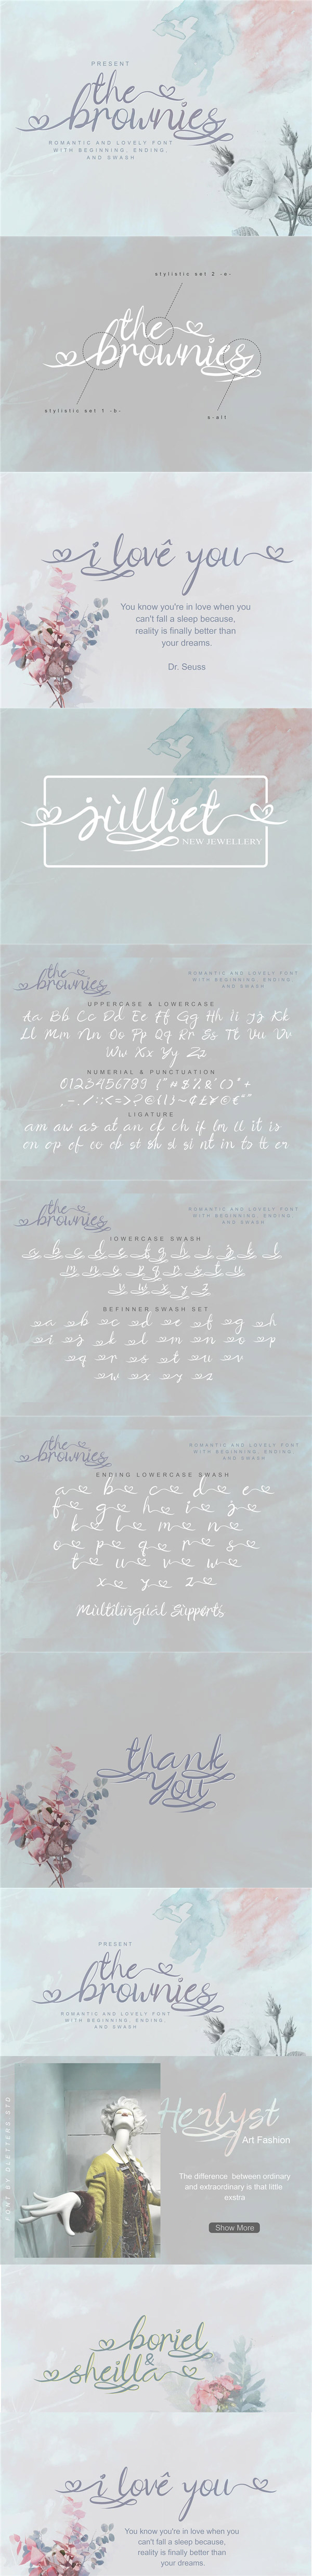 PRESENT
the
brownies
ROMANTIC AND LOVELY FONT
WITH BEGINNING, ENDING,
AND SWASH
stylistic set 2 -e-
the
brownies
stylistic set 1 -b-
s-alt
i lovê you
You know you're in love when you
can't fall a sleep because,
reality is finally better than
your dreams.
Dr. Seuss
jùlliet
NEW JEWELLERY
the
brownies
ROMANTIC AND LOVELY FONT
WITH BEGINNING, ENDING
AND SWASH
UPPERCASE & LOWERCASE
Aa Bb Cc Dd Ee Ff Gg Hh Ii Jj Kk
Ll Mm Nn Oo Pp Qq Rr Ss Tt Uu Vv
Ww Xx Yy Zz
NUMERIAL & PUNCTUATION
0123456789
LIGATURE
am aw as at an ck ch if lm ll it is
on op of oo ob st sh sl si nt in ts tt er
the
brownies
ROMANTIC AND LOVELY FONT
WITH BEGINNING, ENDING
AND SWASH
lOWERCASE SWASH
a b c d e f g h i j k l
m n o p q r s t u
v w x y z
BEFINNER SWASH SET
a b c d e f g h
i j k l m n o p
q r s t u v
w x y z
the
brownies
ROMANTIC AND LOVELY FONT
WITH BEGINNING, ENDING
AND SWASH
ENDING LOWERCASE SWASH
a b c d e
f g h i j
k l m n
o p q r s
t u v w
x y z
Mùltilingúál Sùppórts
thank
you
PRESENT
the
brownies
ROMANTIC AND LOVELY FONT
WITH BEGINNING, ENDING,
AND SWASH
FONT BY DLETTERS STD
Herlyst
Art Fashion
The difference between ordinary
and extraordinary is that little
exstra
Show More
boriel
&
sheilla
i lovê you
You know you're in love when you
can't fall a sleep because,
reality is finally better than
your dreams.